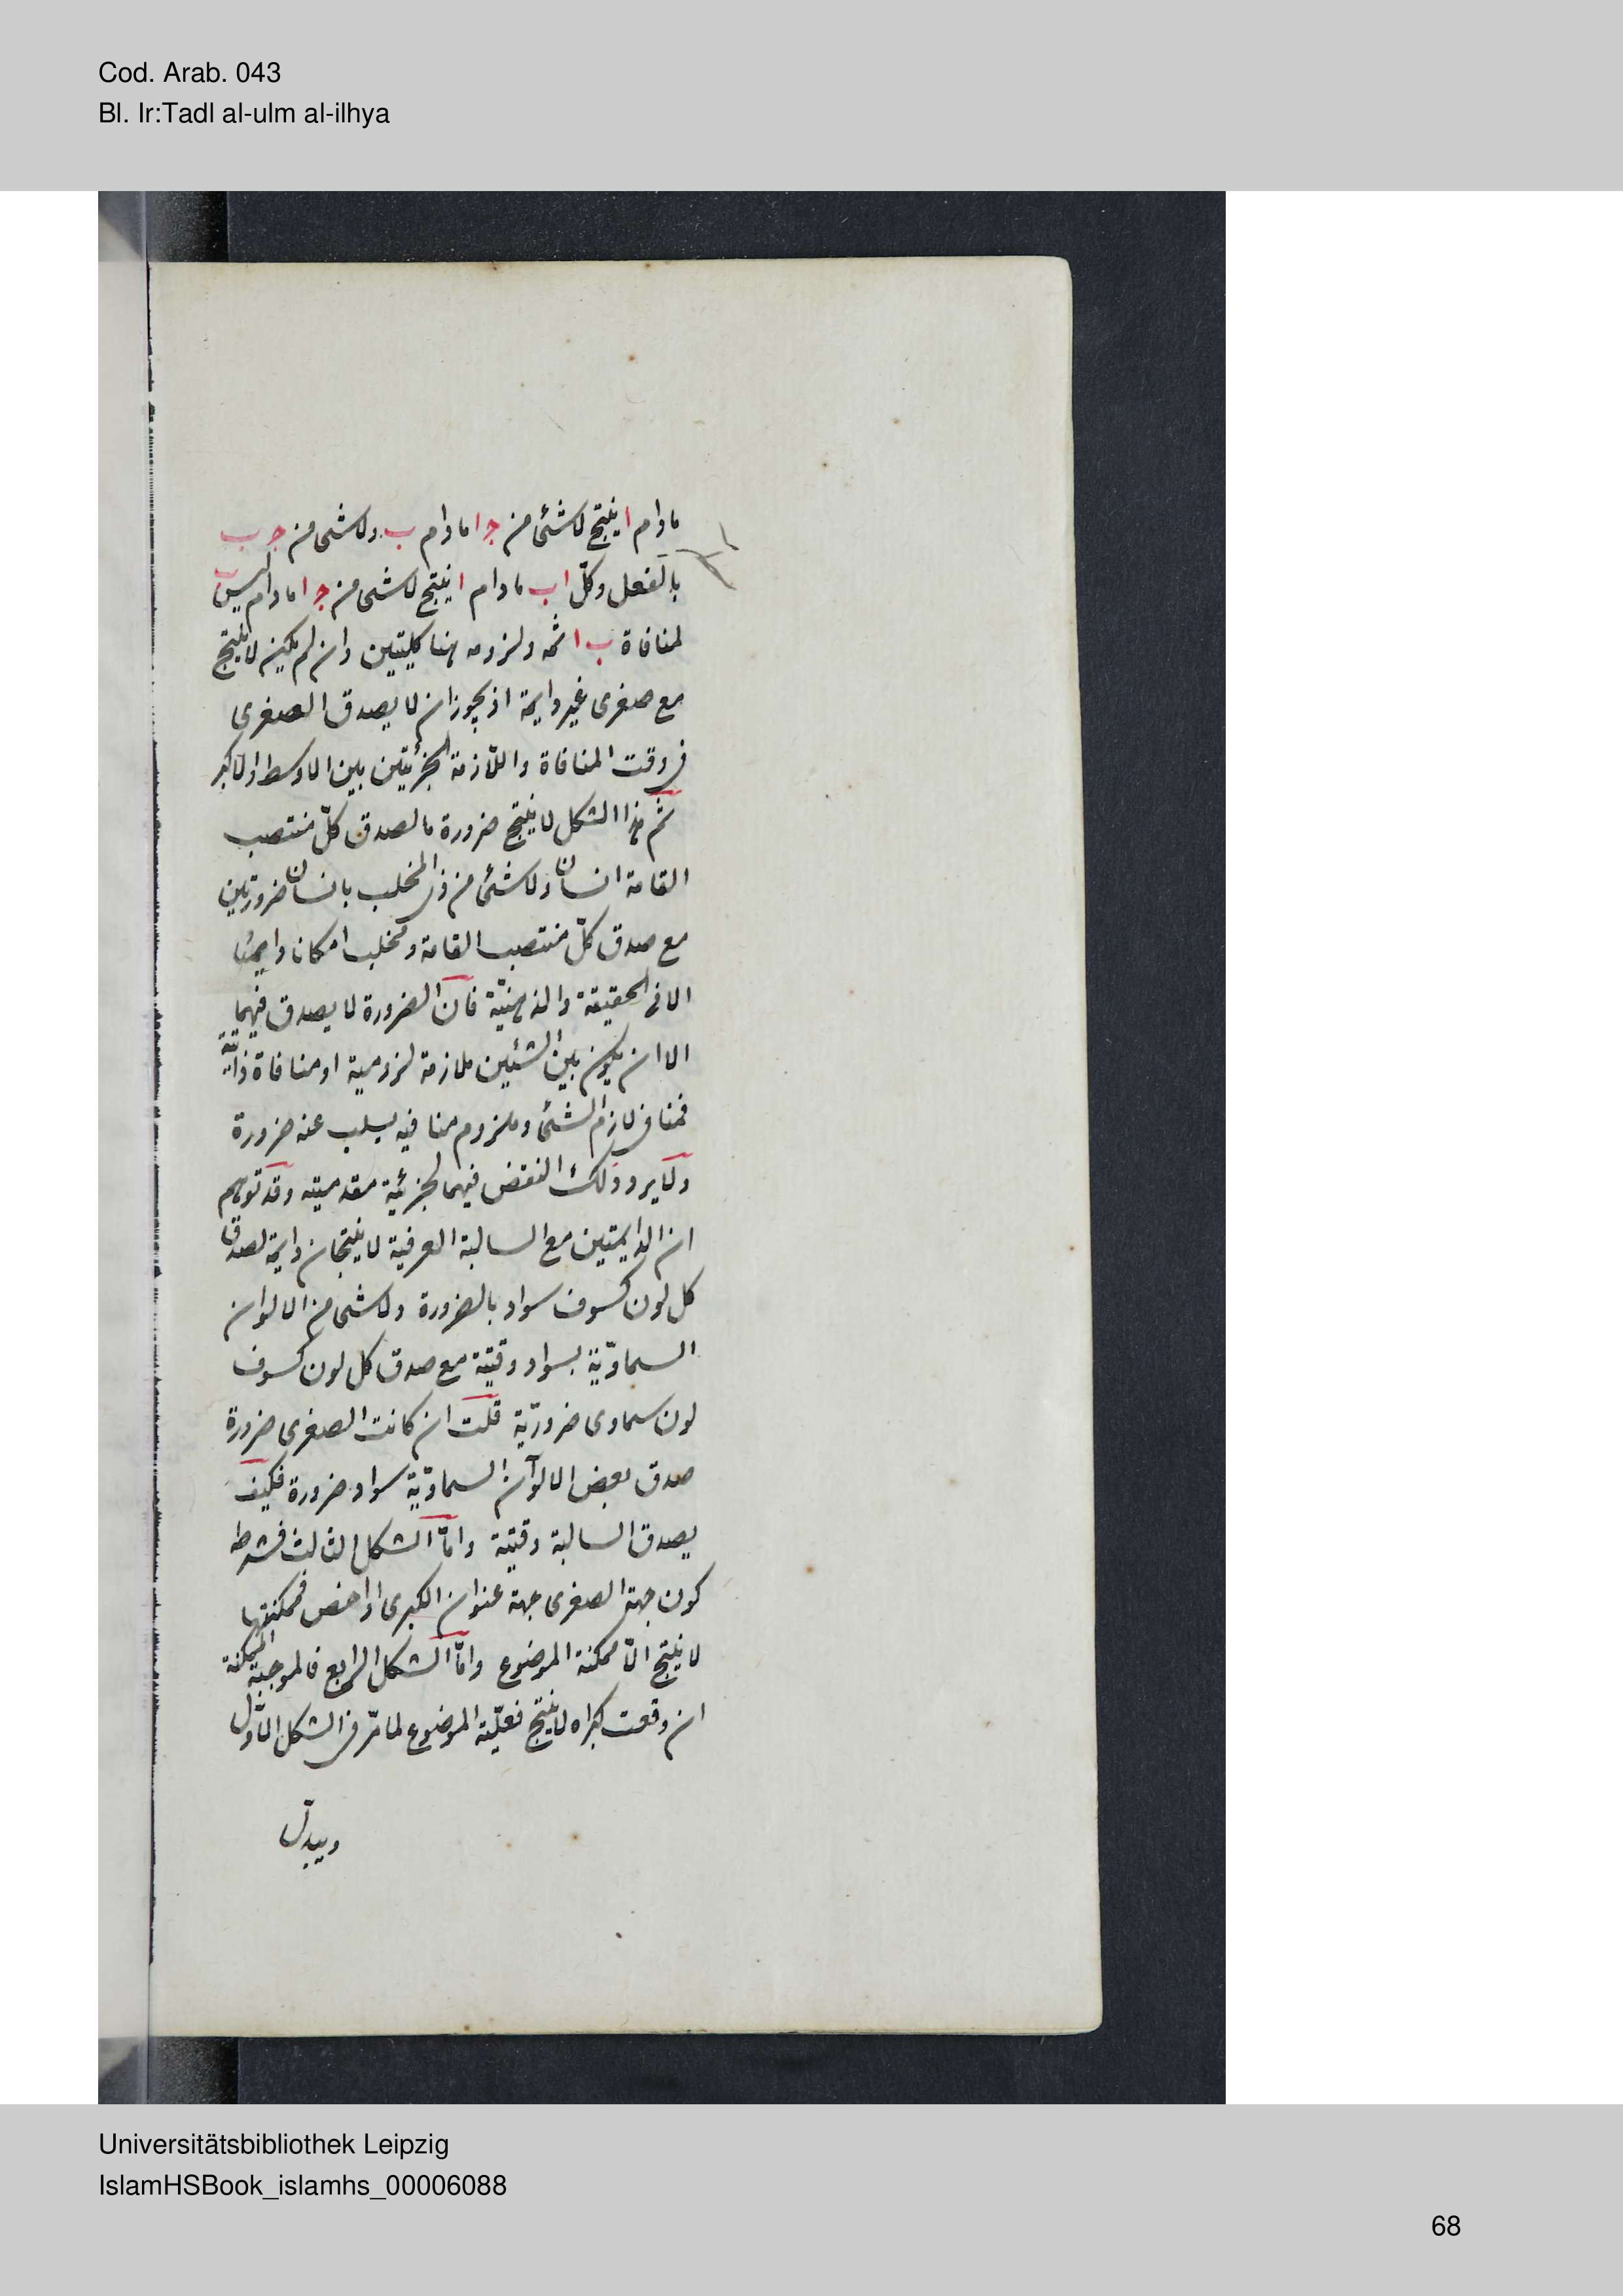 Cod. Arab. 043
Bl. Ir:Tadl al-ulm al-ilhya
مادام ا ينتج لاشئ من ج ا مادام ب ولاشى من ج ب
بالفعل وكلّ ا ب مادام ا ينتج لاشى من ج ا مادام ليس ب
لمنافاة ب ا ثمه ولزومه هنا كليتين وان لم يكن لا ينتج
مع صغرى غير دايمة اذ يجوز ان لا يصدق الصغرى
فى وقت المنافاة واللازمة الجزئيتين بين الاوسط والاكبر
ثم هذا الشكل لا ينتج ضرورة ما لصدق كلّ منتصب
القامة انسان ولاشئ من ذى المخلب بانسان ضروريتين
مع صدق كلّ منتصب القامة ومخلب امكانا دايما
الا فى الحقيقة والذهنيّة فان الضرورة لا يصدق فيهما
الا ان يكون بين الشئين ملازمة لزومية او منافاة ذاتية
فمنافى لازم الشئ وملزوم منافيه يسلب عنه ضرورة
ولا يرد ذلك النقض فيهما لجزئية مقدمتيه وقد توهم
ان الدايمتين مع السالبة العرفية لا ينتجان دايمة لصدق
كل لون كسوف سواد بالضرورة ولاشى من الالوان
السماويّة بسواد وقتية مع صدق كل لون كسوف
لون سماوى ضروريّة قلت ان كانت الصغرى ضرورة
صدق بعض الالوان السماويّة سواد ضرورة فكيف
يصدق السالبة وقتية وامّا الشكل الثالث فشرطه
كون جهة الصغرى جهة عنوان الكبرى او اخص فممكنتها
لا ينتج الا ممكنة الموضوع وامّا الشكل الرابع فالموجبة الممكنة
ان وقعت كبراه لا ينتج فعليّة الموضوع لما مرّ فى الشكل الاوّل
ويبدل
Universitätsbibliothek Leipzig
IslamHSBook_islamhs_00006088
68